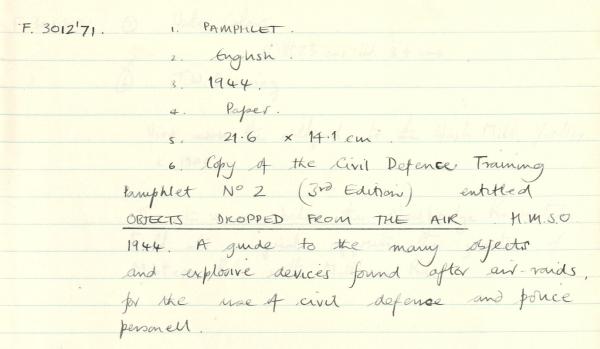 F. 3012'71. 1. PAMPHLET.
2. English.
3. 1944.
4. Paper.
5. 21.6 x 14.1 cm.
6. Copy of the Civil Defence Training
Pamphlet No 2 (3rd Edition) entitled
OBJECTS DROPPED FROM THE AIR. H.M.S.O.
1944. A guide to the many objects
and explosive devices found after air-raids,
for the use of civil defense and police
personell.